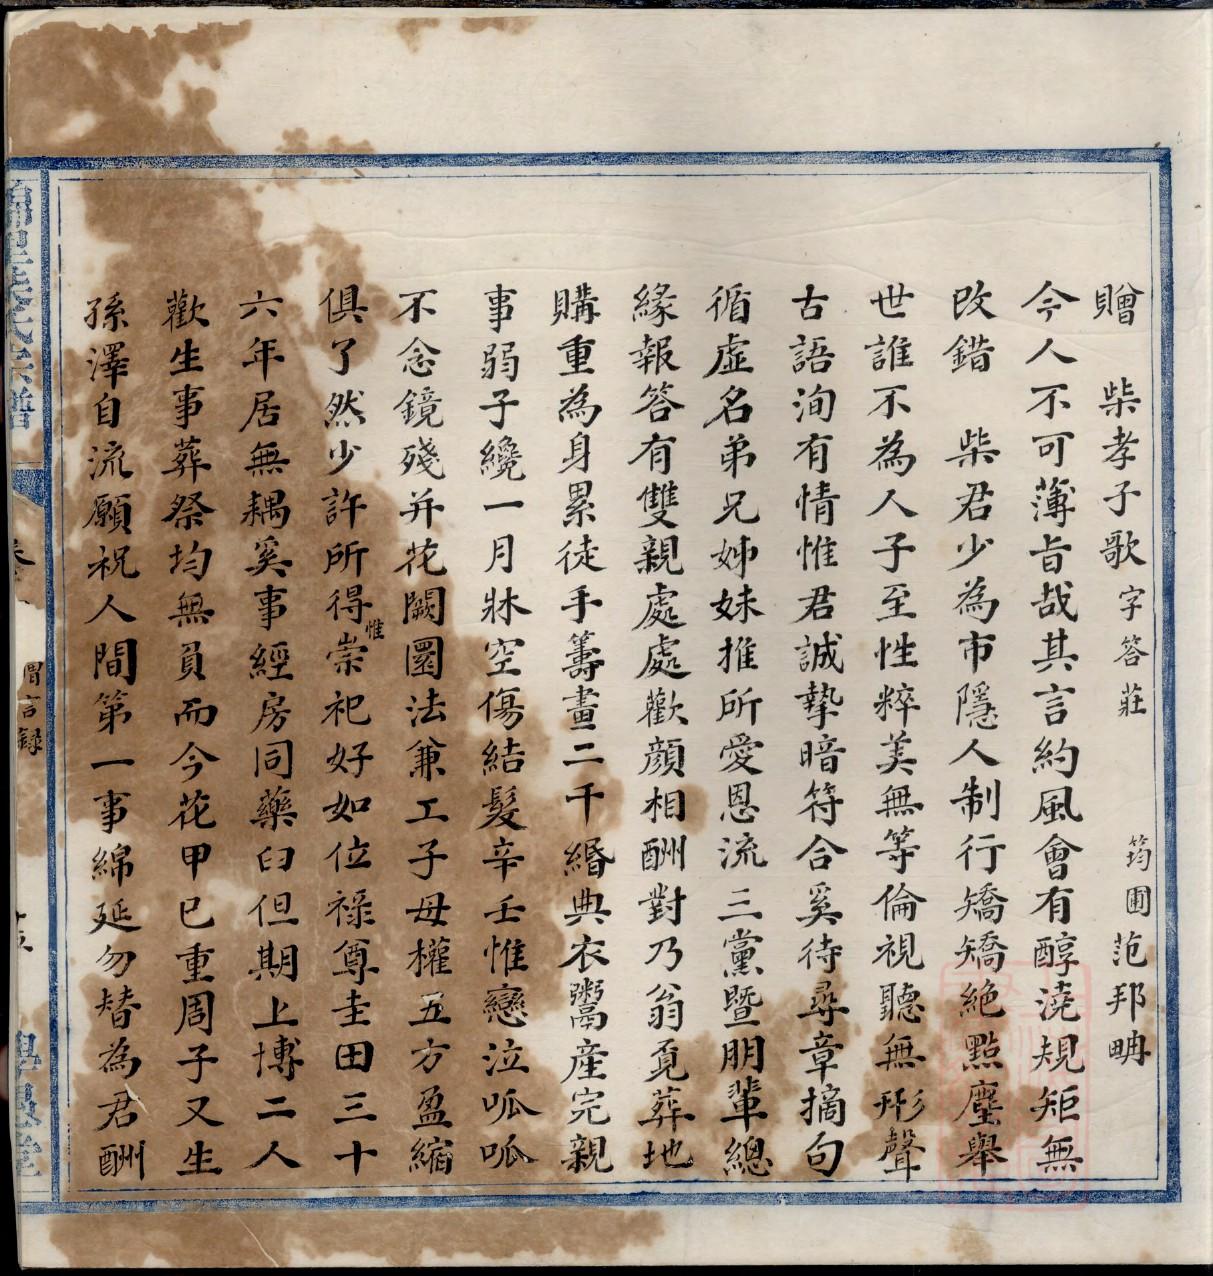 贈　柴孝子歌字答莊　筠圃范邦𤱶
今人不可薄旨哉其言約風會有醇澆規矩無
改錯　柴君少為市隱人制行矯矯絶點塵舉
世誰不為人子至性粹美無等倫視聽無形聲
古語洵有情惟君誠摯暗符合奚待尋章摘句
循虛名弟兄姊妹推所愛恩流三黨暨朋輩總
緣報答有雙親處處歡顏相酬對乃翁覔葬地
購重為身累徒手籌畫二千緡典衣鬻產完親
事弱子纔一月牀空傷結髮辛壬惟戀泣呱呱
不念鏡殘并花闕圜法兼工子母權五方盈縮
俱了然少許所得惟崇祀好如位祿尊圭田三十
六年居無耦奚事經房同藥臼但期上博二人
歡生事葬祭均無負而今花甲已重周子又生
孫澤自流願祝人間第一事綿延勿替為君酬
氏宗譜
謂言録